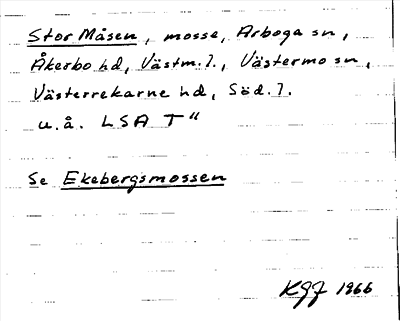 Stor Måsen, mosse, Arboga sn,
Åkerbo hd, Västm. l., Västermo sn,
Västerrekarne hd, Söd. l.
u.å. LSA T"
Se Ekebergsmossen
KGJ 1966